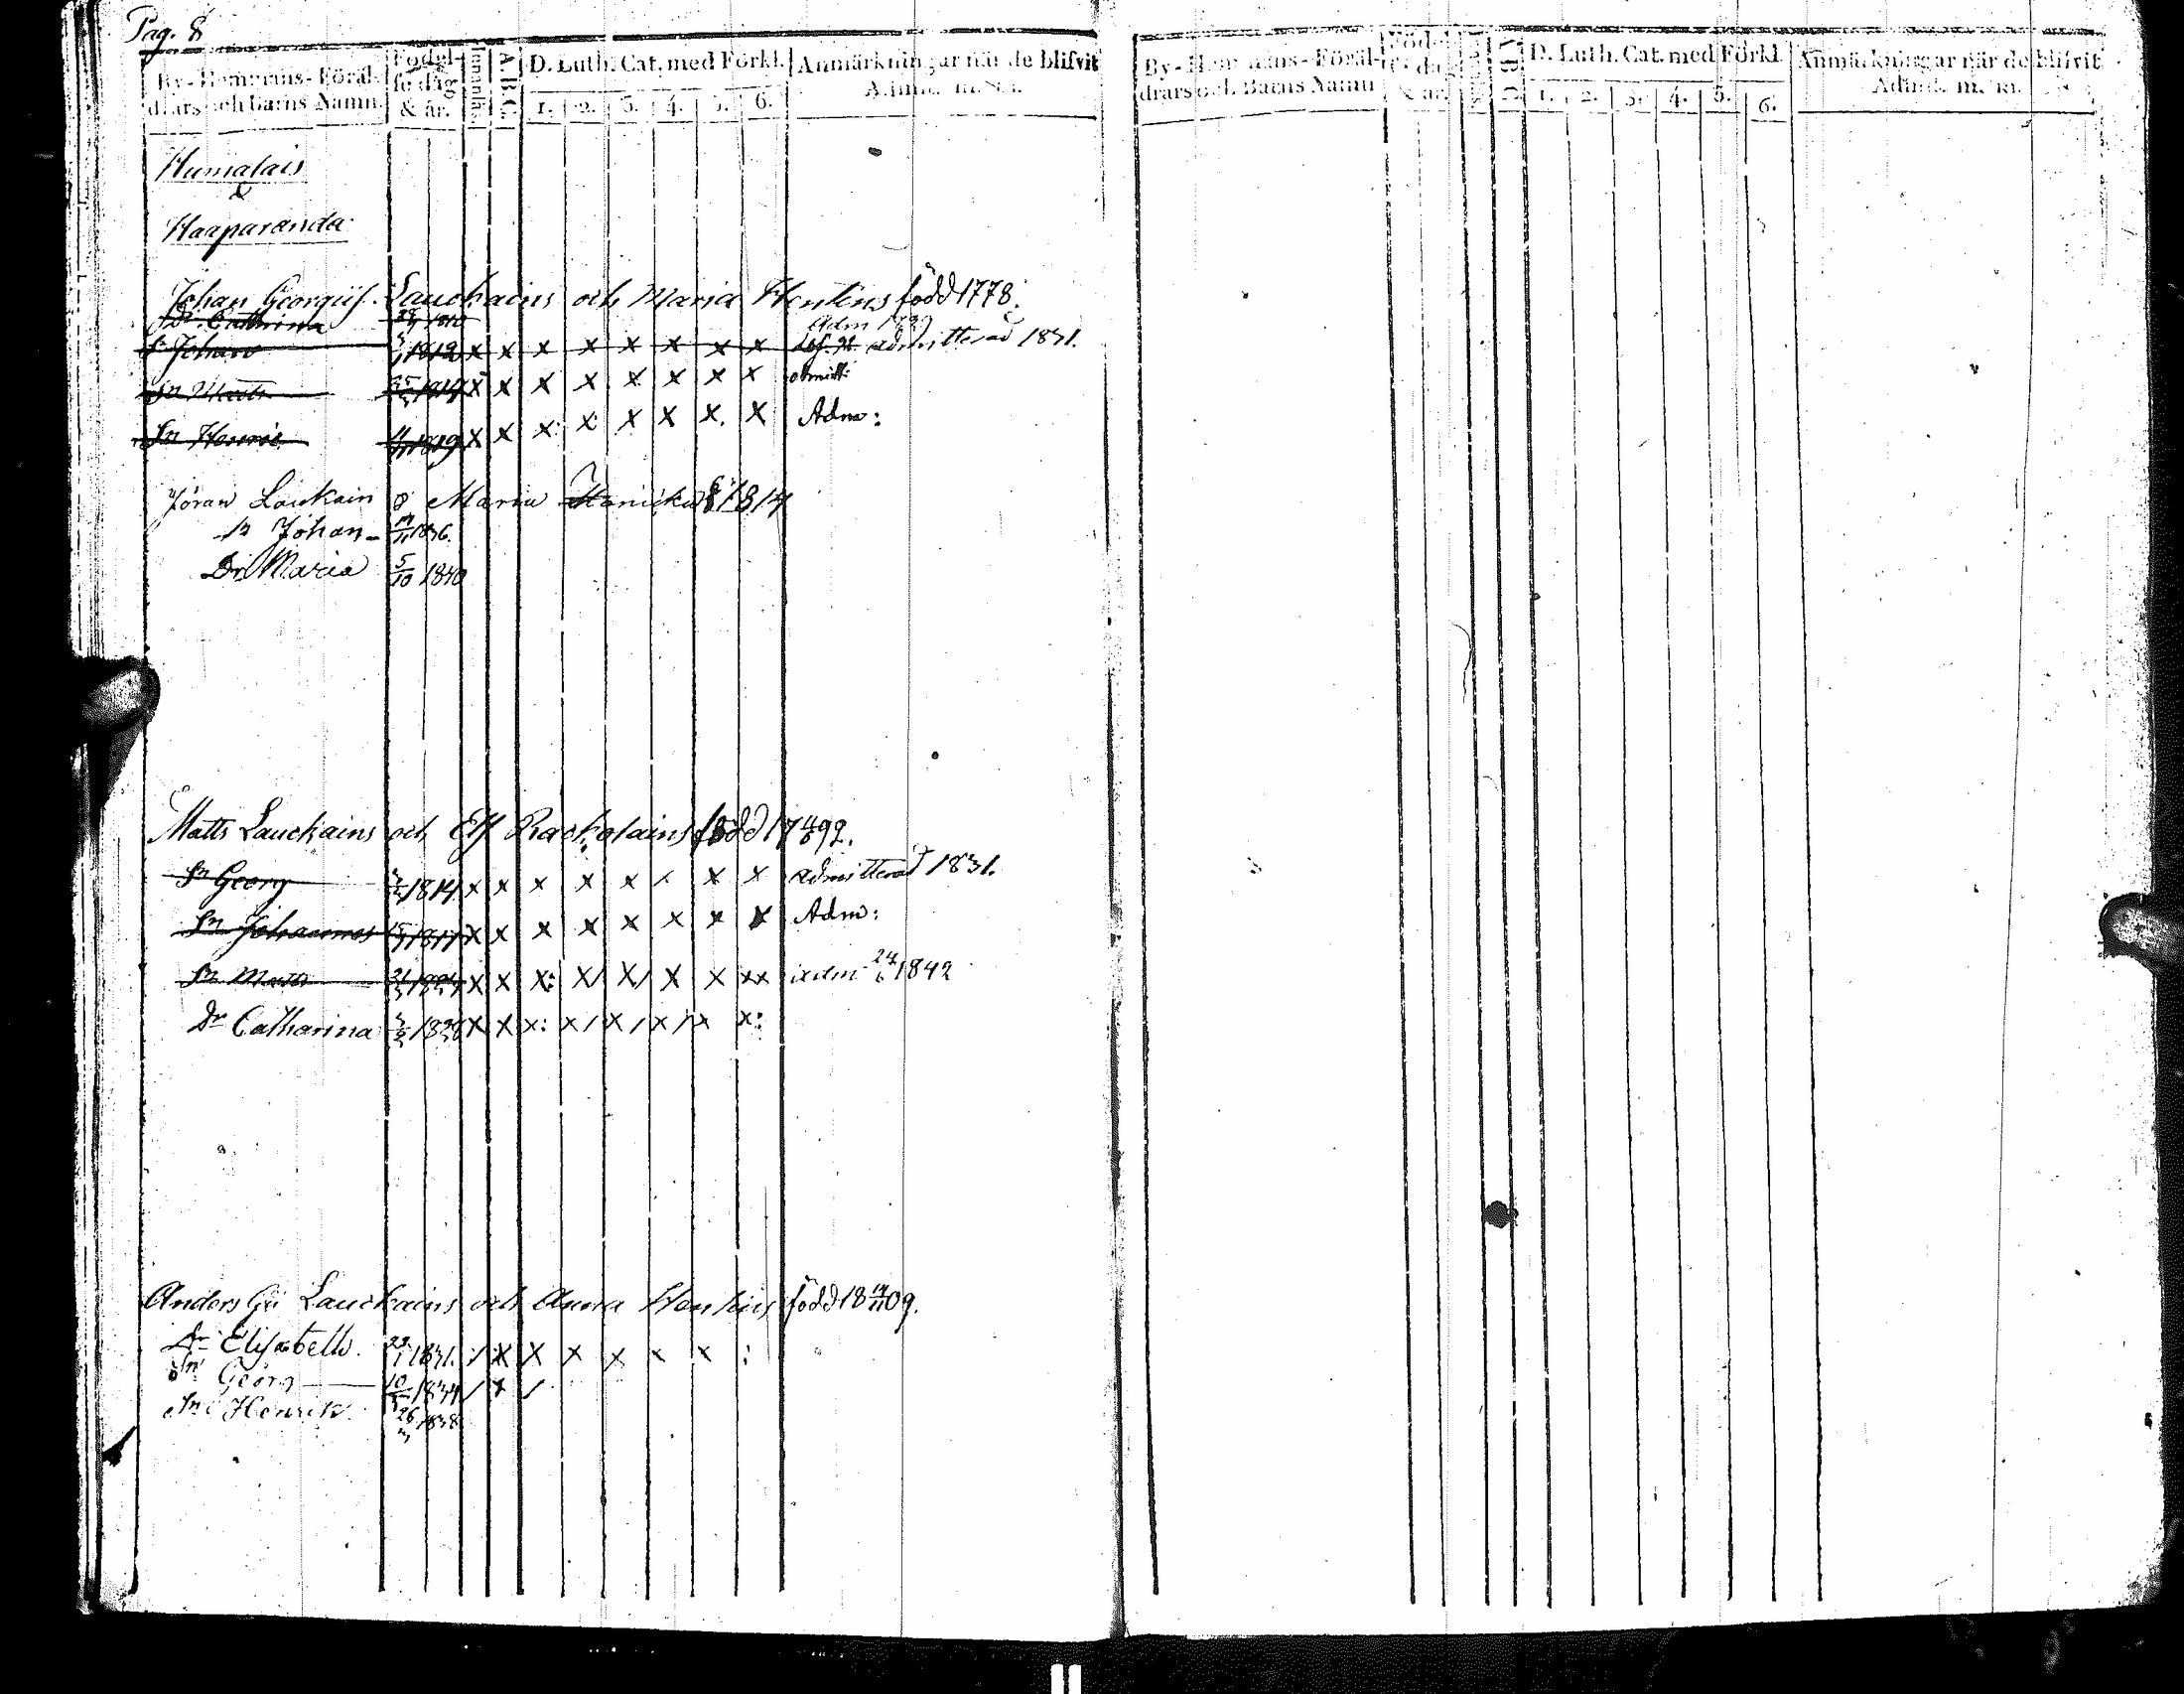 Pag. 8
By-Hemmans-Föräl-
drars och Barns Namn.
Födel-
se dag
& år.
Innanläs.
A.B.C.
D. Luth. Cat. med Förkl.
1. 2. 3. 4. 5. 6.
Anmärkningar när de blifvit
Admit. m. m.
Humalais
&
Haaparanda
Johan Georgiif. Lauckains och Maria Henlins född 1778.
Dr. Cathrina 1810
Adm
Sn Johan 1812 x x x x x x x x admitterad 1831.
Sn Matts 1814 x x x x x x x x admitt:
Sn Henric 1819 x x x x x x x x Adm:
Jöran Laukain & Maria 1814
Sn Johan 1836.
Dr Maria 5/10 1840
Matts Lauckains och Elf Rackolains född 1792.
Sn Georg 1814 x x x x x x x x admitterad 1831.
Sn Johannes 1817 x x x x x x x x Adm:
Sn Matts 1824 x x x: x/ x/ x x xx adm 24/6 1842
Dr Catharina 1828 x x x: x/ x/ x/ x x:
Anders Gii Lauckains och Anna Hankins född 1809.
Dr Elisabeth. 1831. / x x x x x x :
Sn Georg 1834 / x /
Sn Henrik 26/3 1838
By-Hemmans-Föräl-
drars och Barns Namn
Födel-
se dag
& år.
A.B.C.
D. Luth. Cat. med Förkl.
1. 2. 3. 4. 5. 6.
Anmärkningar när de blifvit
Admit. m. m.